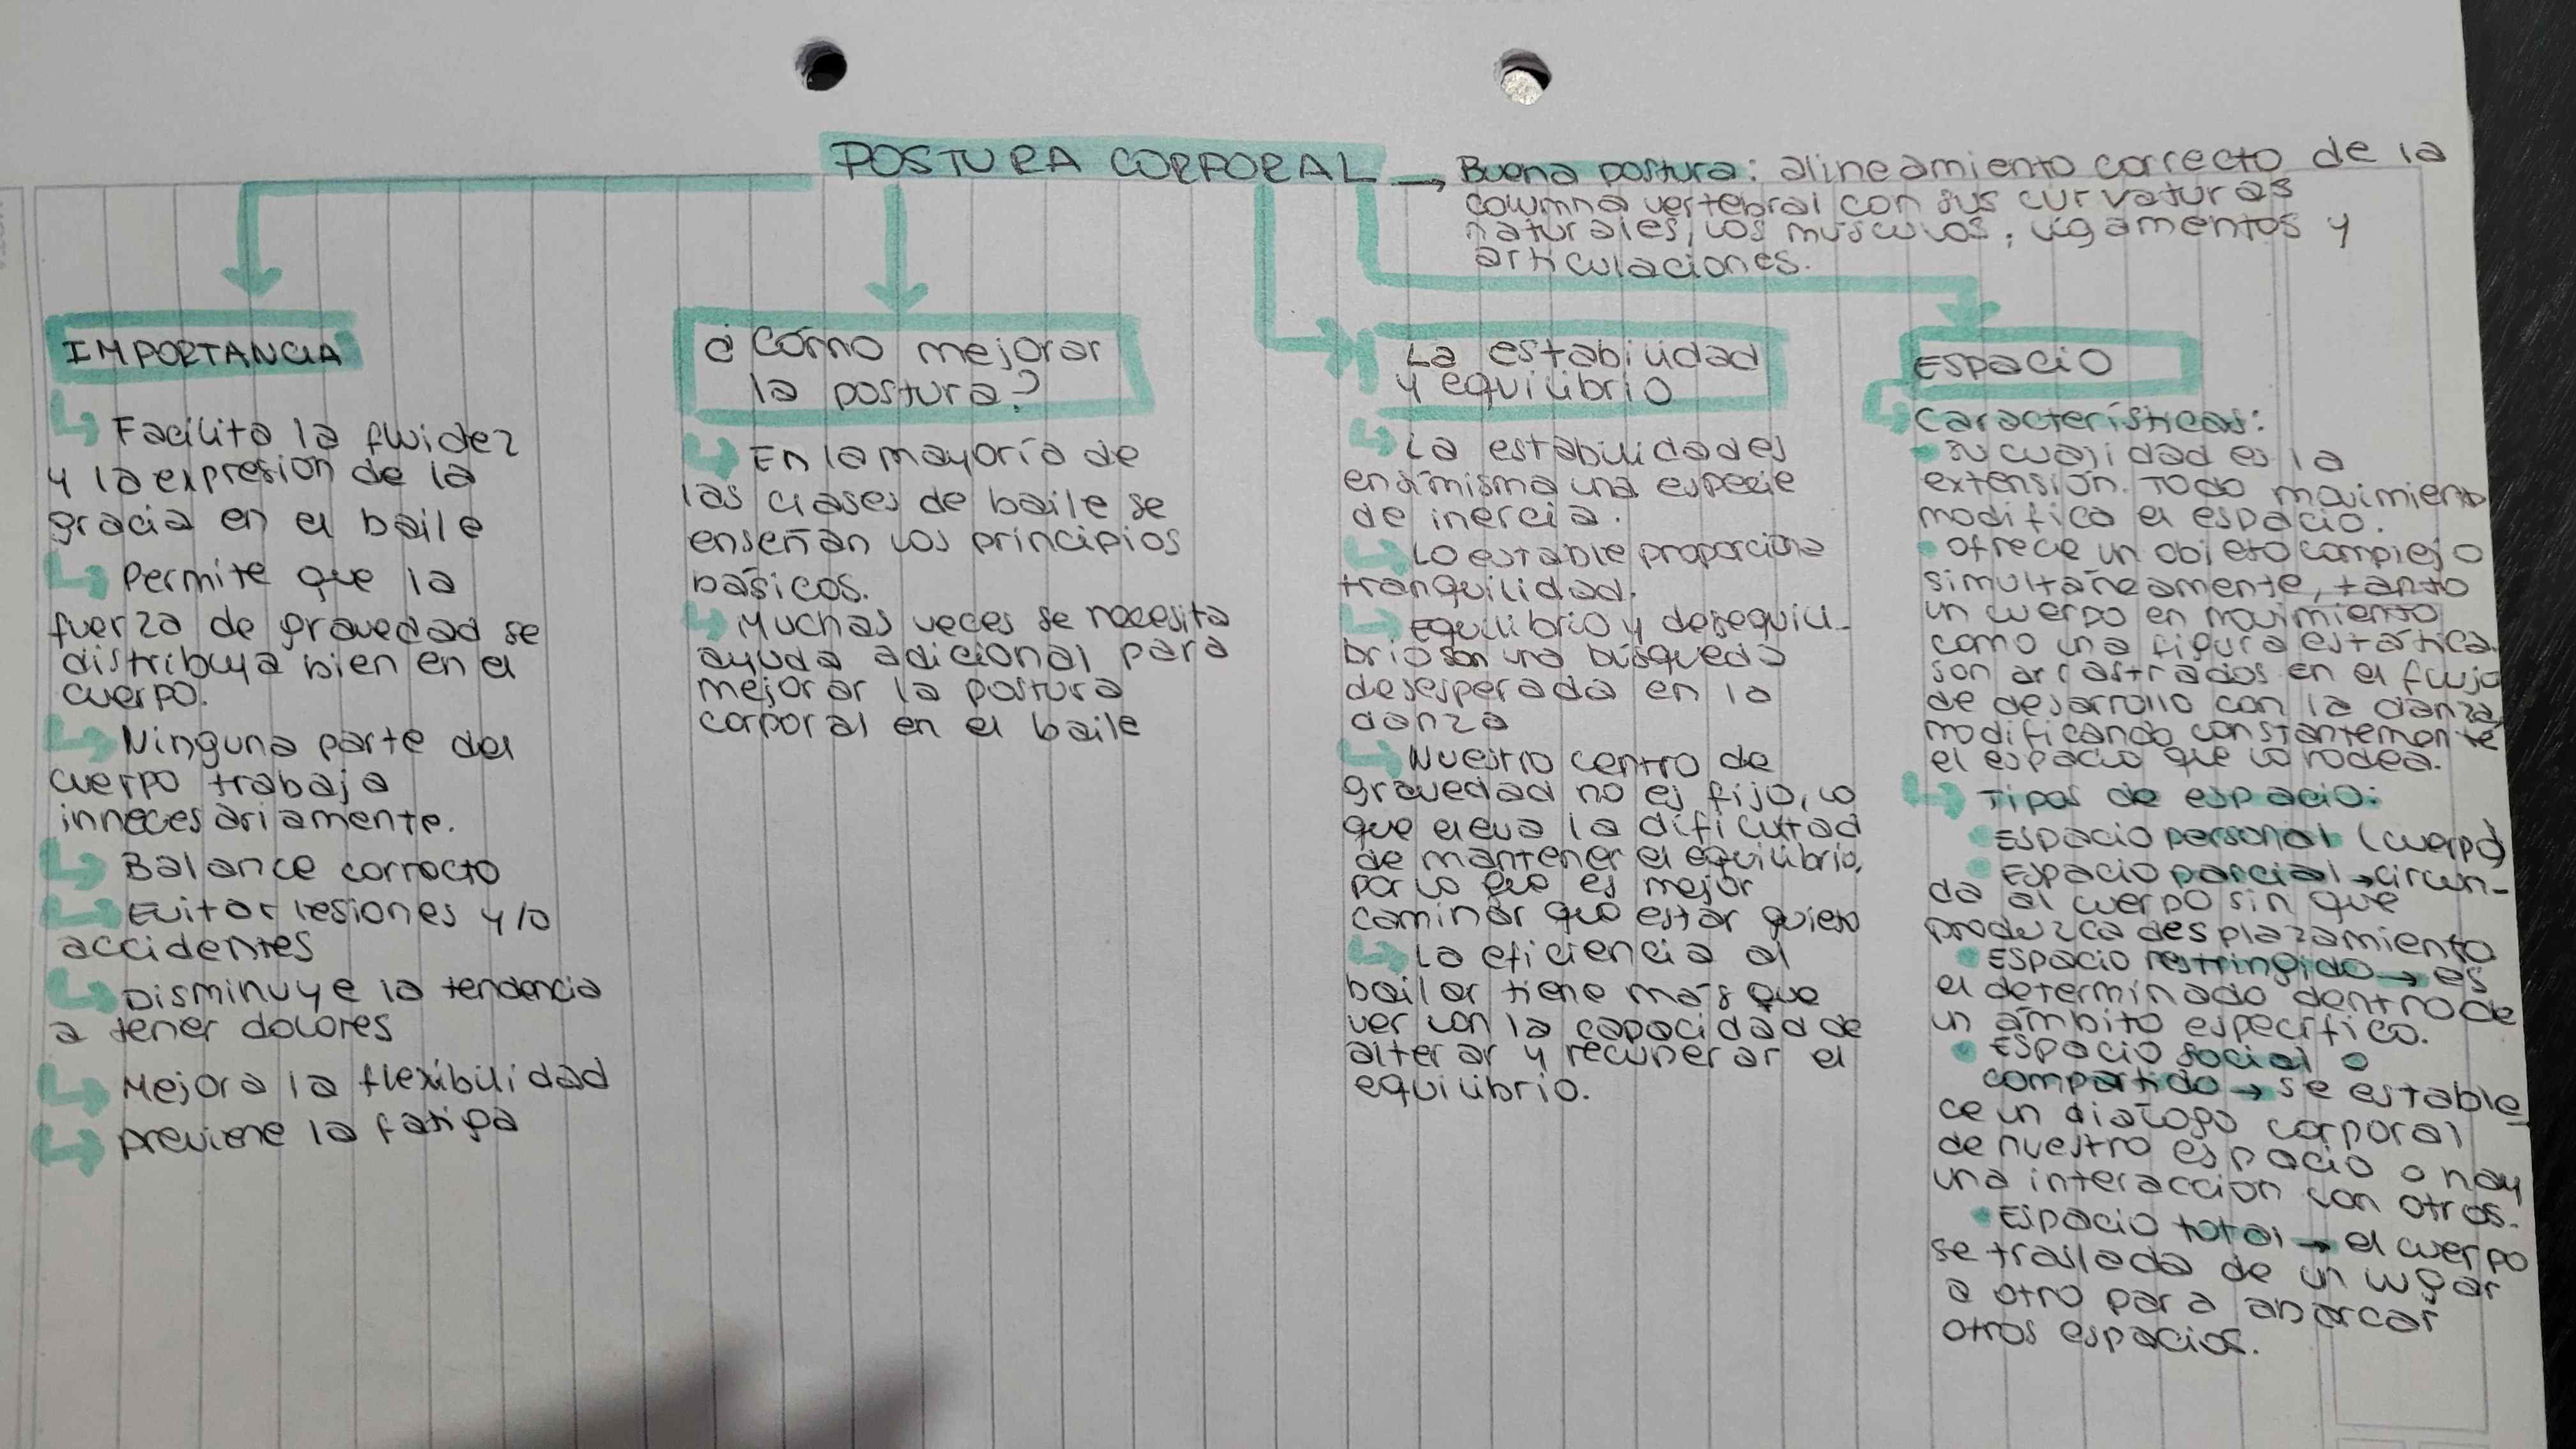 POSTURA CORPORAL → Buena postura: alineamiento correcto de la
columna vertebral con sus curvaturas
naturales, los músculos, ligamentos y
articulaciones.
IMPORTANCIA
Facilita la fluidez
y la expresión de la
gracia en el baile
Permite que la
fuerza de gravedad se
distribuya bien en el
cuerpo.
Ninguna parte del
cuerpo trabaja
innecesariamente.
Balance correcto
Evitar lesiones y/o
accidentes
Disminuye la tendencia
a tener dolores
Mejora la flexibilidad
previene la fatiga
¿Cómo mejorar
la postura?
En la mayoría de
las clases de baile se
enseñan los principios
básicos.
Muchas veces se necesita
ayuda adicional para
mejorar la postura
corporal en el baile
La estabilidad
y equilibrio
La estabilidad es
en sí misma una especie
de inercia.
Lo estable proporciona
tranquilidad.
Equilibrio y desequili-
brio son una búsqueda
desesperada en la
danza
Nuestro centro de
gravedad no es fijo, lo
que eleva la dificultad
de mantener el equilibrio,
por lo que es mejor
caminar que estar quieto
La eficiencia al
bailar tiene más que
ver con la capacidad de
alterar y recuperar el
equilibrio.
ESPACIO
Características:
• su cualidad es la
extensión. Todo movimiento
modifica el espacio.
• ofrece un objeto complejo
simultáneamente, tanto
un cuerpo en movimiento
como una figura estática.
son arrastrados en el flujo
de desarrollo con la danza,
modificando constantemente
el espacio que lo rodea.
Tipos de espacio:
• Espacio personal (cuerpo)
• Espacio parcial → circun-
da al cuerpo sin que
produzca desplazamiento
• Espacio restringido → es
el determinado dentro de
un ámbito específico.
• Espacio social o
compartido → se estable_
ce un diálogo corporal
de nuestro espacio o hay
una interacción con otros.
• Espacio total → el cuerpo
se traslada de un lugar
a otro para abarcar
otros espacios.